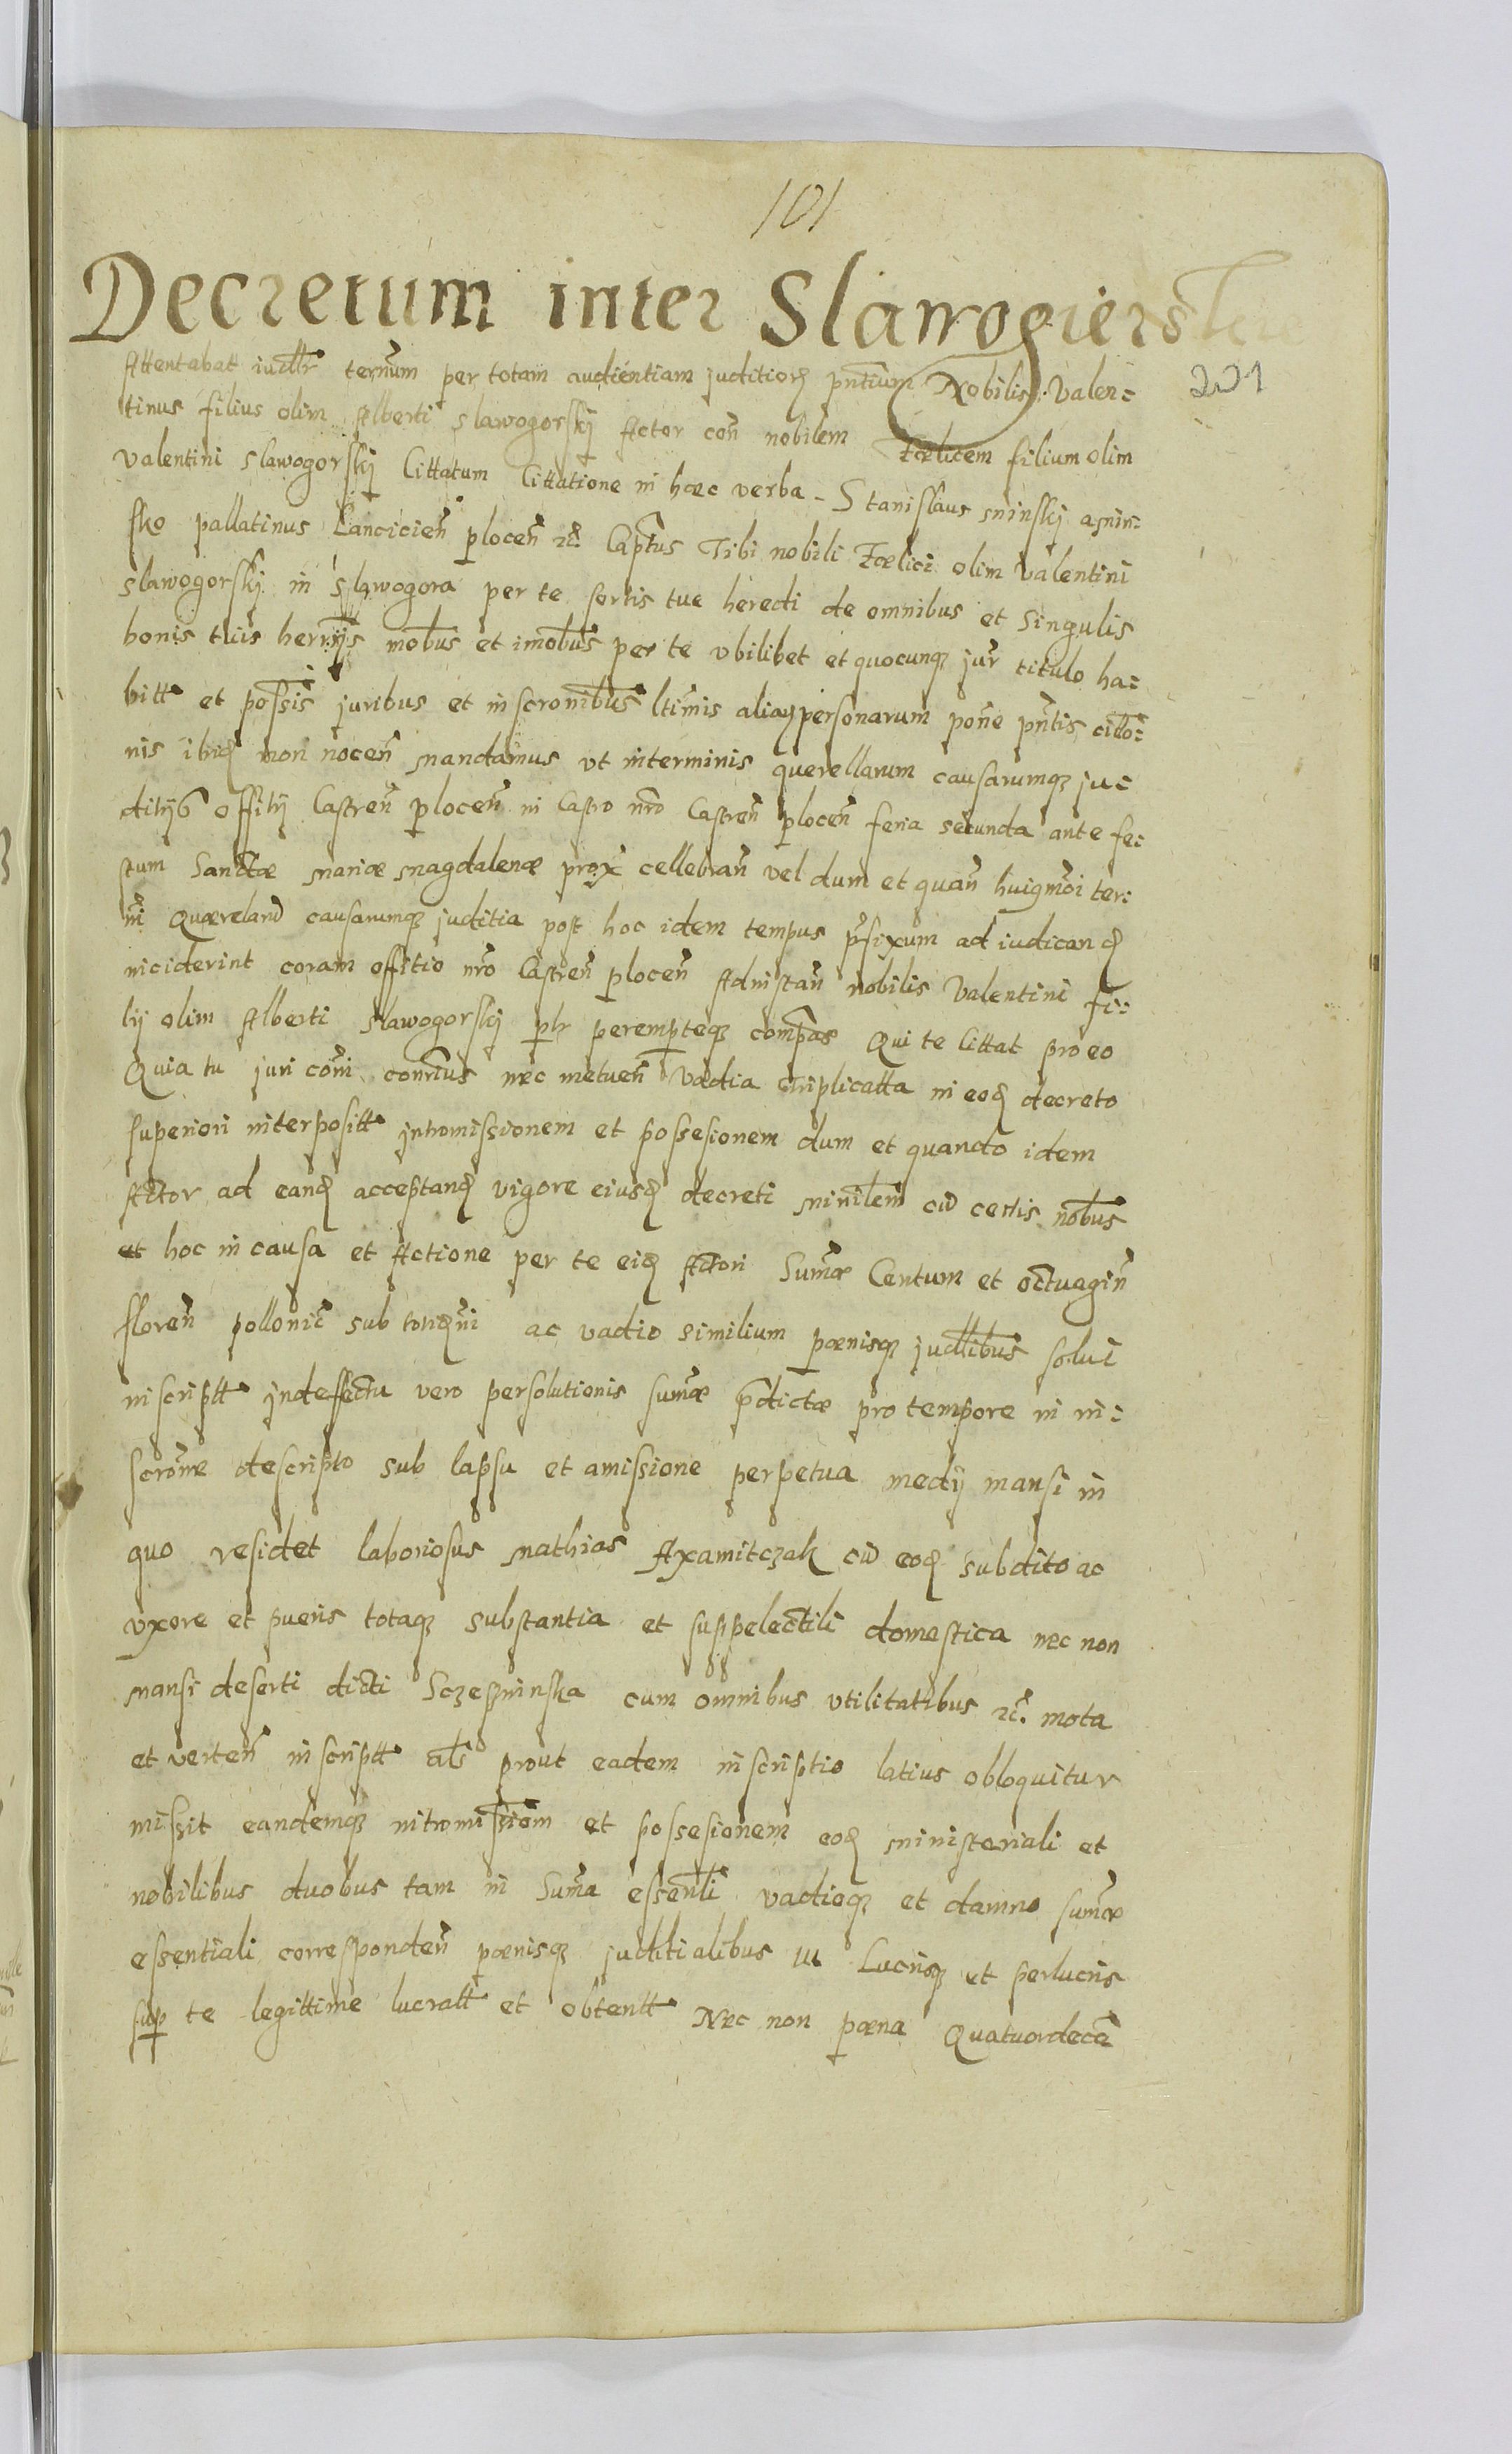 101
Decretum inter Slawogierskie
201
Attentabat iudllr ternum per totam audientiam juditiorq pntium Nobilis Valen:
tinus filius olim Alberti Slawogorskij Actor con nobilem Fœlicem filium olim
Valentini Slawogorskij Cittatum Cittatione in hœc verba - Stanislaus Sninskj a Snin:
sko pallatinus Lancicien plocen etc. Captus Tibi nobili Fœlici olim Valentini
Slawogorskj in Slawogora per te sortis tue heredi de omnibus et Singulis
bonis tuis mobus et imobus per te vbilibet et quocunq jur titulo ha:
bitt et possis juribus et inscronibus ltimis personarum pone pntis cittõ:
nis non nocen Mandamus vt interminis querellarum causarumq ju:
ditijs offitij Castren plocen in Castro nro Castren plocen feria secunda ante fe:
stum Sanctæ Mariæ Magdalenæ prox cellebran vel dum et quan huigmoi ter:
mi Quereland causarumq juditia post hoc idem tempus pfixum ad iudicand
inciderint coram offitio nro Castren plocen Adinstan nobilis Valentini fi:
lij olim Alberti Slawogorskj plr perempteq compas Qui te cittat pro eo
Quia tu juri comi conrius nec metuen Vadia Triplicatta in eod decreto
superiori interpositt jntromissionem et possesionem dum et quando idem
Actor ad eand acceptand vigore eiusd decreti minilem cu certis nobus
et hoc in causa et Actione per te eid Actori Sumæ Centum et octuagin
floren pollonic sub ac vadio similium pœnisq judlibus solui
inscriptt jndeffectu vero persolutionis sumæ pdictæ pro tempore in in:
scrone descripto sub lapsu et amissione perpetua medij mansi in
quo residet laboriosus Mathias Axamitczak cu eod subdito ac
vxore et pueris totaq substantia et suppelectili domestica nec non
Mansi deserti dicti cum omnibus vtilitatibus etc. mota
et verten inscriptt als prout eadem inscriptio latius obloquitur
missit eandemq intromissiom et possesionem eod ministeriali et
nobilibus duobus tam in Suma essenli vadioq et damno sumæ
essentiali corresponden pœnisq juditialibus in Lucrisq et perlucris
sup te legittime lucratt et obtentt Nec non pœna Quatuordece